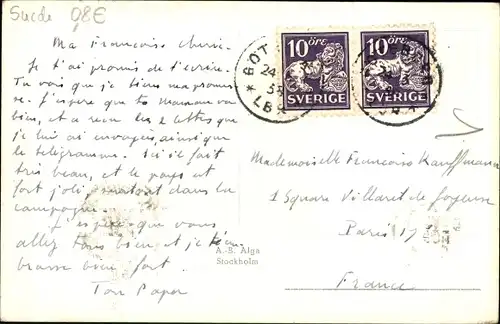 Suede 08€
Ma Françoise chérie
Je t'ai promis de t'écrire.
Tu vois que je tiens ma promes
se. J'espère que ta Maman va
bien, et a reçu les 2 lettres que
je lui ai envoyées, ainsi que
le télégramme. Ici il fait
très beau, et le pays est
fort joli, surtout dans la
campagne.
J'espère que vous
allez tous bien et je t'em-
brasse bien fort.
Ton Papa
A.-B. Alga
Stockholm
10 ÖRE
SVERIGE
10 ÖRE
SVERIGE
Mademoiselle Françoise Kauffmann
1 Square Villaret de Joyeuse
Paris 17
France